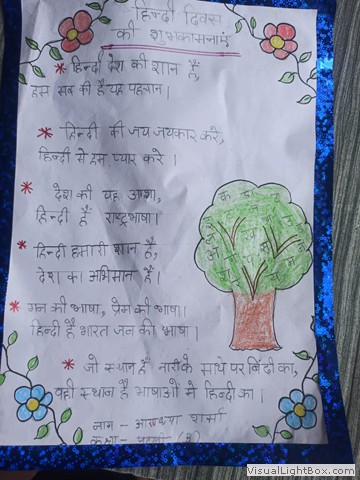 हिन्दी दिवस
की शुभकामनाएं
* हिन्दी देश की शान है,
हम सब की है यह पहचान।
* हिन्दी की जय जयकार करें,
हिन्दी से हम प्यार करें।
* देश की यह आशा,
हिन्दी है राष्ट्रभाषा।
* हिन्दी हमारी शान है,
देश का अभिमान है।
* मन की भाषा, प्रेम की भाषा।
हिन्दी है भारत जन की भाषा।
* जो स्थान है नारी के माथे पर बिंदी का,
वही स्थान है भाषाओं में हिन्दी का।
नाम - शर्मा
कक्षा -
VisualLightBox.com